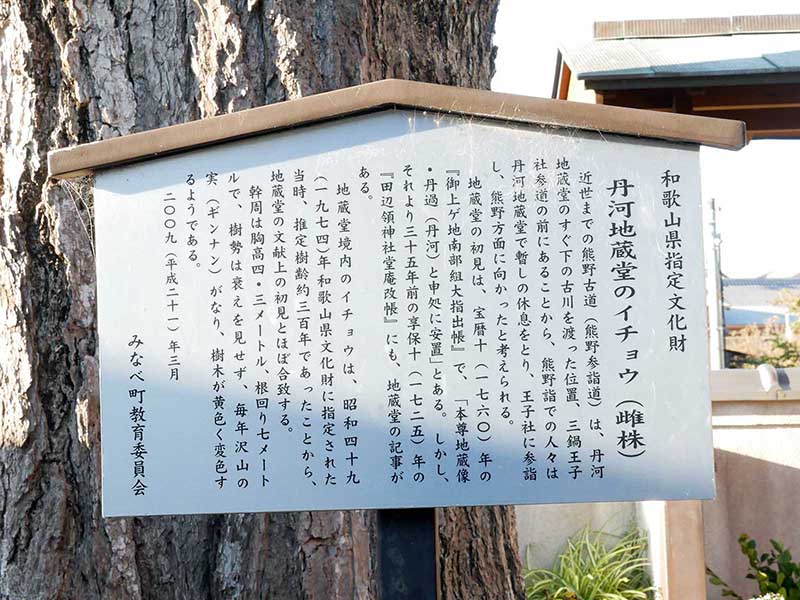 和歌山県指定文化財
丹河地蔵堂のイチョウ（雌株）
近世までの熊野古道（熊野参詣道）は、丹河
地蔵堂のすぐ下の古川を渡った位置、三鍋王子
社参道の前にあることから、熊野詣での人々は
丹河地蔵堂で暫しの休息をとり、王子社に参詣
し、熊野方面に向かったと考えられる。
地蔵堂の初見は、宝暦十（一七六〇）年の
『御上ゲ地南部組大指出帳』で、「本尊地蔵像
・丹過（丹河）と申処に安置」とある。しかし、
それより三十五年前の享保十（一七二五）年の
『田辺領神社堂庵改帳』にも、地蔵堂の記事が
ある。
地蔵堂境内のイチョウは、昭和四十九
（一九七四）年和歌山県文化財に指定された
当時、推定樹齢約三百年であったことから、
地蔵堂の文献上の初見とほぼ合致する。
幹周は胸高四・三メートル、根回り七メート
ルで、樹勢は衰えを見せず、毎年沢山の
実（ギンナン）がなり、樹木が黄色く変色す
るようである。
二〇〇九（平成二十一）年三月
みなべ町教育委員会